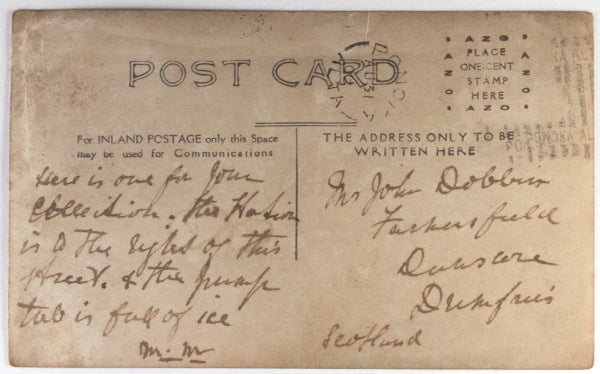 POST CARD
AZO
PLACE
ONE CENT
STAMP
HERE
AZO
AZO
AZO
PONOKA ALTA
For INLAND POSTAGE only this Space
may be used for Communications
THE ADDRESS ONLY TO BE
WRITTEN HERE
Here is one for your
Collection. the Station
is to the right of this
street. & the pump
tub is full of ice
M. M
Mr John Dobbin
Dunscore
Dumfries
Scotland